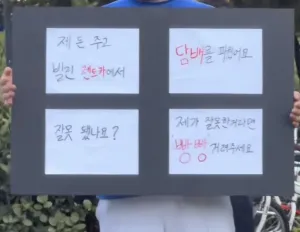 제 돈 주고
빌린 렌트카에서
담배를 피웠어요
잘못 됐나요?
제가 잘못한거라면
빵빵
거려주세요